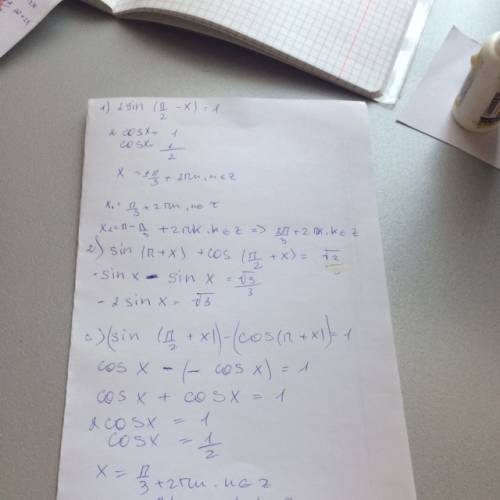 1) 2 sin (π/2 - x) = 1
2 cos x = 1
cos x = 1/2
x = ±π/3 + 2πn, n∈z
x₁ = π/3 + 2πn, n∈z
x₂ = π - π/3 + 2πk, k∈z => 2π/3 + 2πk, k∈z
2) sin (π + x) + cos (π/2 + x) =
- sin x - sin x = √3/3
- 2 sin x = √3
c) (sin (π/2 + x) - (cos (π + x) = 1
cos x - (- cos x) = 1
cos x + cos x = 1
2 cos x = 1
cos x = 1/2
x = π/3 + 2πn, n∈z